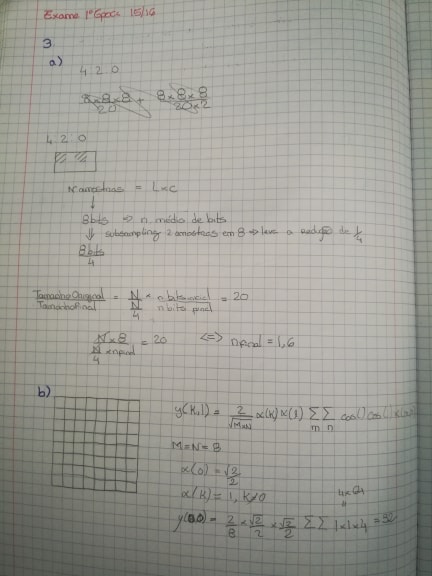 Exame 1ª Época 15/16
3.
a)
4 2 0
8×8×8 + 8×8×8
20 20×2
4 2 0
N amostras = L×C
↓
8bits ⇒ n. médio de bits
⇓ subsampling 2 amostras em 8 ⇒ leva a redução de 1/4
8bits
4
Tamanho Original / Tamanho Final = N / (N/4) × n bits inicial / n bits final = 20
N × 8 / (N/4 × nfinal) = 20 <=> nfinal = 1,6
b)
y(k,l) = 2/√M×N α(k)α(l) Σm Σn cos( ) cos( )
M=N=8
α(0) = √2/2
α(k) = 1, k≠0
4×64
y(0,0) = 2/8 × √2/2 × √2/2 Σ Σ 1×1×4 = 32